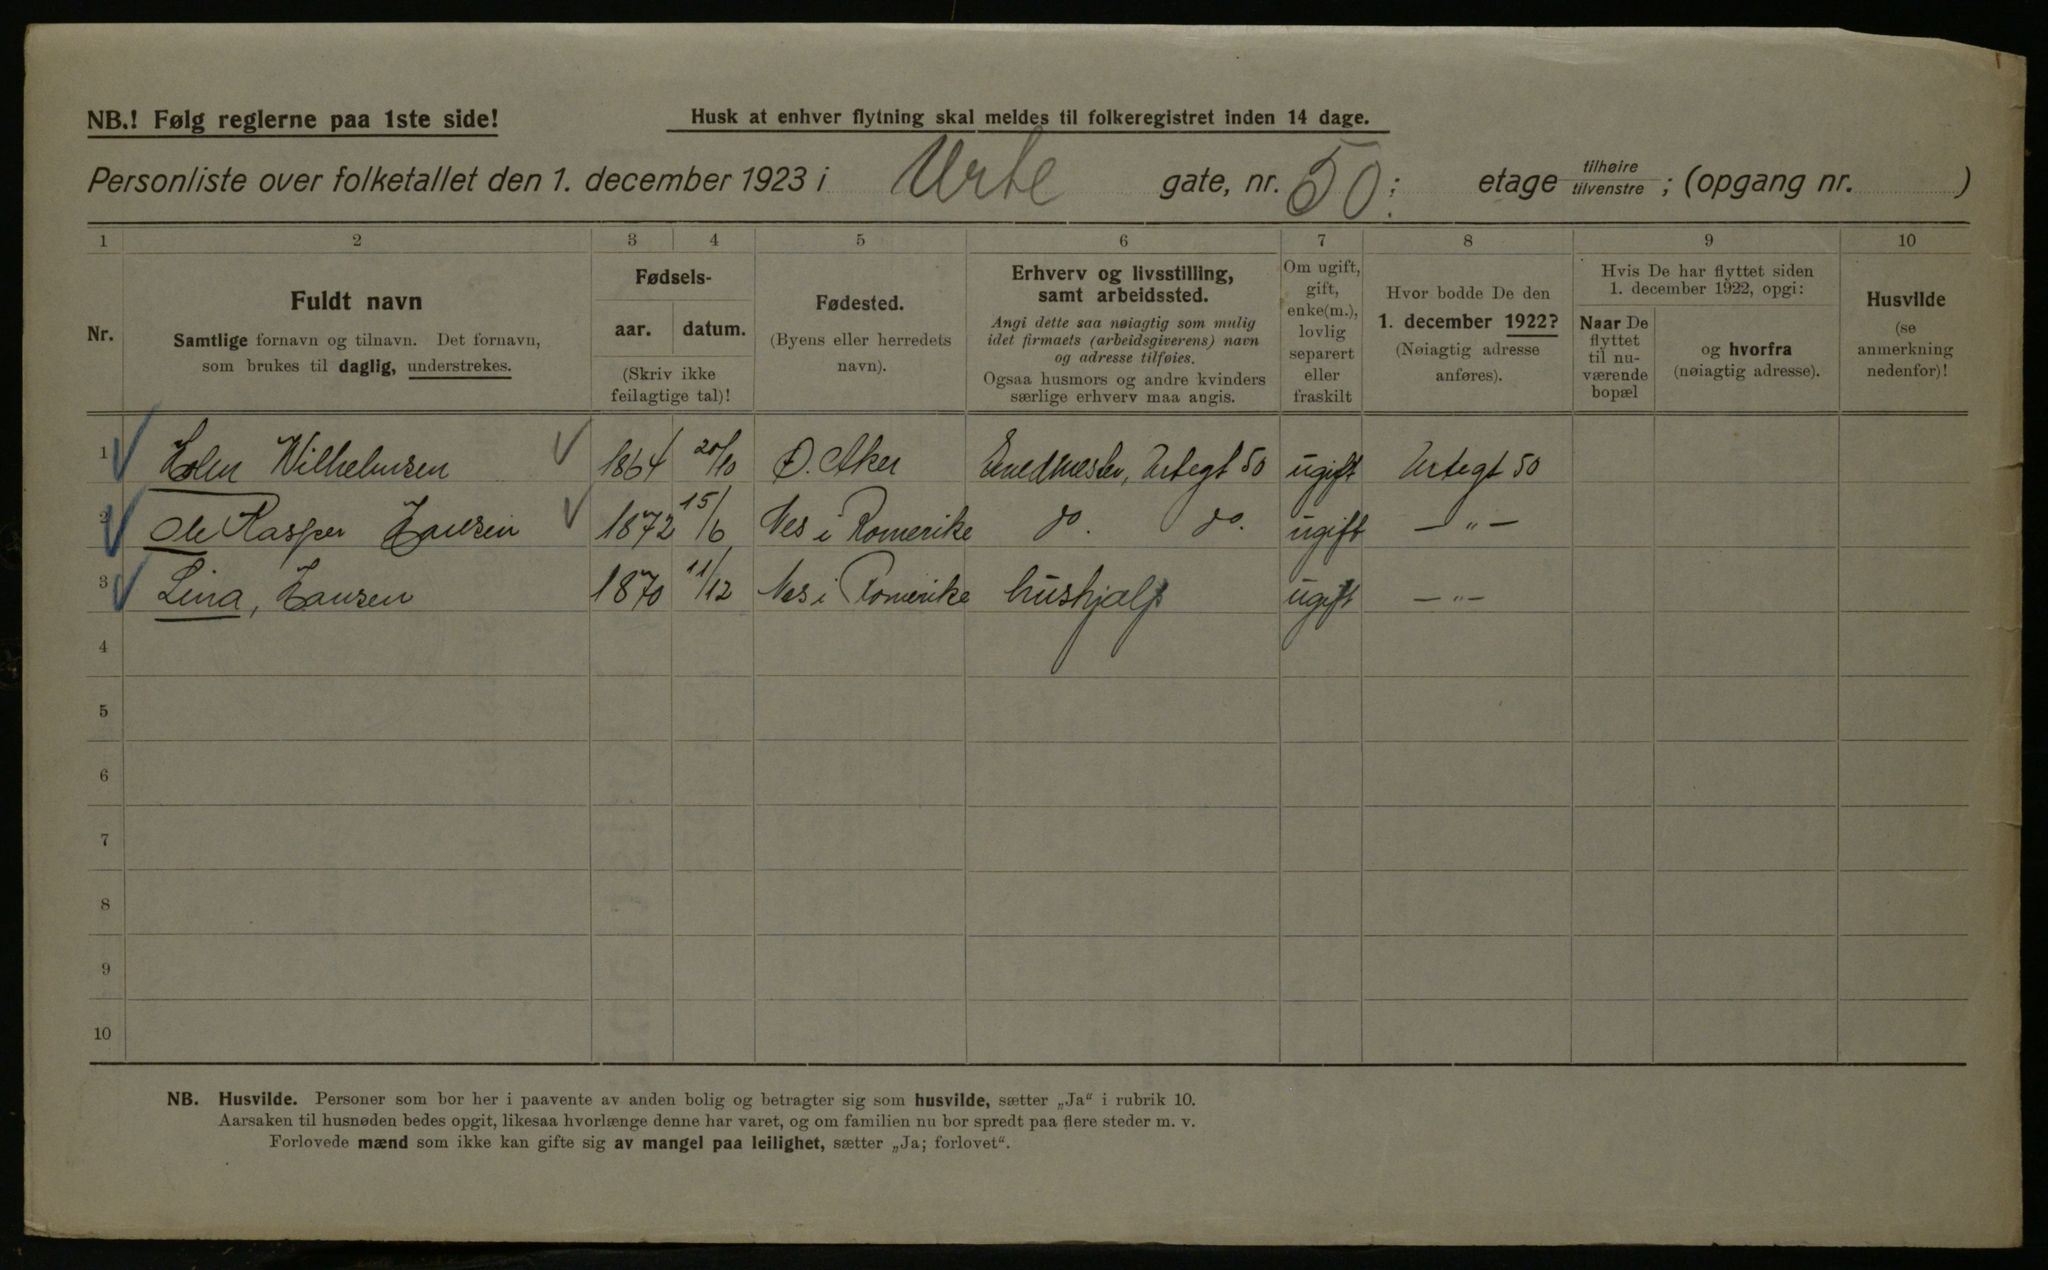 NB.! Følg reglerne paa 1ste side!
Husk at enhver flytning skal meldes til folkeregistret inden 14 dage.
Personliste over folketallet den 1. december 1923 i Urte gate, nr. 50; etage tilhøire tilvenstre ; (opgang nr. )
1 2 3 4 5 6 7 8 9 10
Nr.
Fuldt navn
Samtlige fornavn og tilnavn. Det fornavn,
som brukes til daglig, understrekes.
Fødsels-
aar. datum.
(Skriv ikke
feilagtige tal)!
Fødested.
(Byens eller herredets
navn).
Erhverv og livsstilling,
samt arbeidssted.
Angi dette saa nøiagtig som mulig
idet firmaets (arbeidsgiverens) navn
og adresse tilføies.
Ogsaa husmors og andre kvinders
særlige erhverv maa angis.
Om ugift,
gift,
enke(m.),
lovlig
separert
eller
fraskilt
Hvor bodde De den
1. december 1922?
(Nøiagtig adresse
anføres).
Hvis De har flyttet siden
1. december 1922, opgi:
Naar De
flyttet
til nu-
værende
bopæl
og hvorfra
(nøiagtig adresse).
Husvilde
(se
anmerkning
nedenfor)!
1 Holm Wilhelmsen 1864 20/10 Ø. Aker Smedmester, Urtegt 50 ugift Urtegt 50
2 Ole Kasper Hansen 1872 15/6 Nes i Romerike do. do. ugift — " —
3 Lina, Hansen 1870 11/12 Nes i Romerike hushjælp ugift — " —
4
5
6
7
8
9
10
NB. Husvilde. Personer som bor her i paavente av anden bolig og betragter sig som husvilde, sætter „Ja“ i rubrik 10.
Aarsaken til husnøden bedes opgit, likesaa hvorlænge denne har varet, og om familien nu bor spredt paa flere steder m. v.
Forlovede mænd som ikke kan gifte sig av mangel paa leilighet, sætter „Ja; forlovet“.